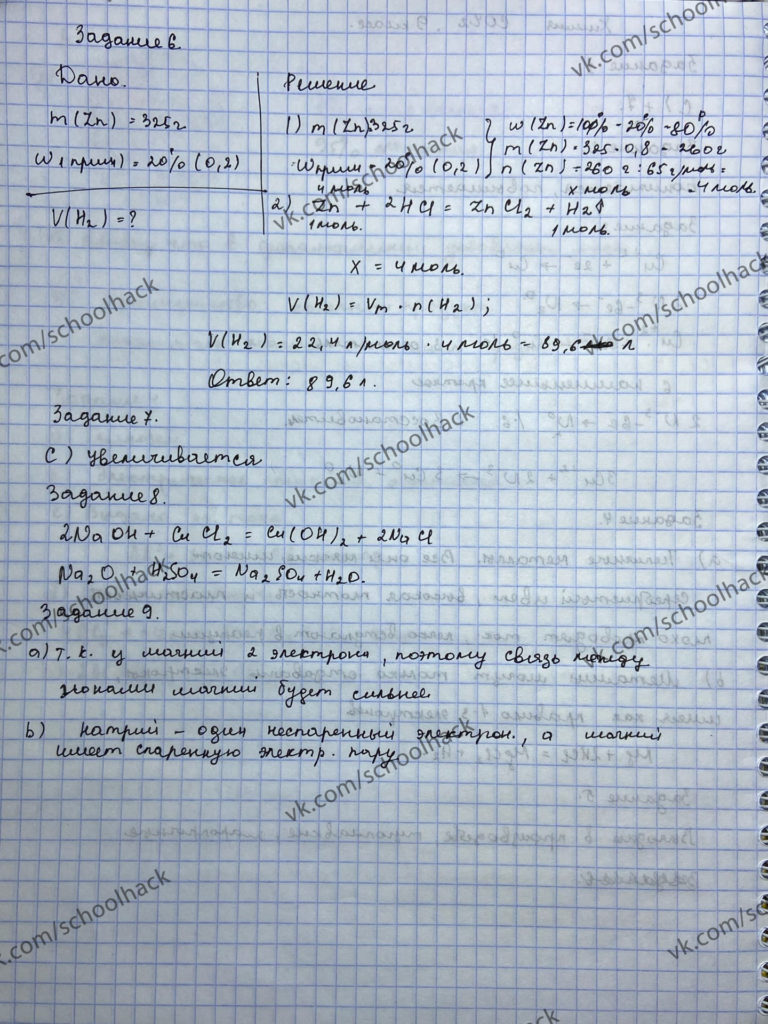 Задание 6.
Дано.
Решение
m(Zn) = 325г
w(прим) = 20% (0,2)
V(H₂) = ?
1) m(Zn)325г
wприм = 20% (0,2)
w(Zn)=100% - 20% = 80%
m(Zn) = 325 · 0,8 = 260г
n(Zn) = 260г : 65г/моль =
= 4 моль.
4 моль x моль
2) Zn + 2HCl = ZnCl₂ + H₂↑
1 моль. 1 моль.
X = 4 моль.
V(H₂) = Vm · n(H₂);
V(H₂) = 22,4 л/моль · 4 моль = 89,6 л
Ответ: 89,6 л.
Задание 7.
С) увеличивается
Задание 8.
2NaOH + CuCl₂ = Cu(OH)₂ + 2NaCl
Na₂O + H₂SO₄ = Na₂SO₄ + H₂O.
Задание 9.
a) т.к. у магний 2 электрона, поэтому связь между
ионами магний будет сильнее
b) натрий – один неспаренный электрон., а магний
имеет спаренную электр. пару
vk.com/schoolhack
vk.com/schoolhack
vk.com/schoolhack
vk.com/schoolhack
vk.com/schoolhack
vk.com/schoolhack
vk.com/schoolhack
vk.com/schoolhack
vk.com/schoolhack
vk.com/schoolhack